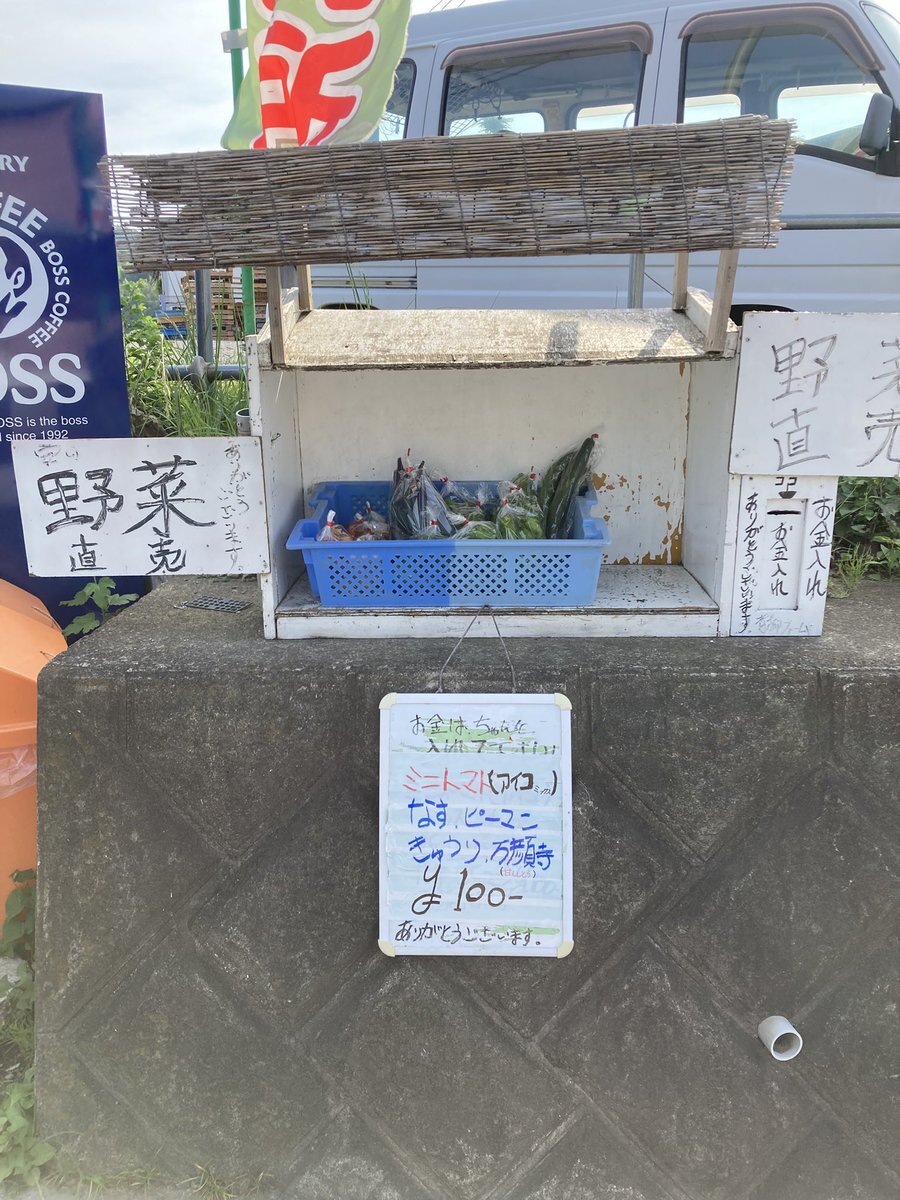 RY
BOSS COFFEE
OSS
OSS is the boss
since 1992
野菜
直売
ありがとうございます。
野菜
直売
ココ
お金入れ
お金入れ
ありがとうございます。
お金は、ちゃんと
入れて下さい
ミニトマト(アイコミックス)
なす、ピーマン
きゅうり、万願寺
(甘とう)
¥100-
ありがとうございます。